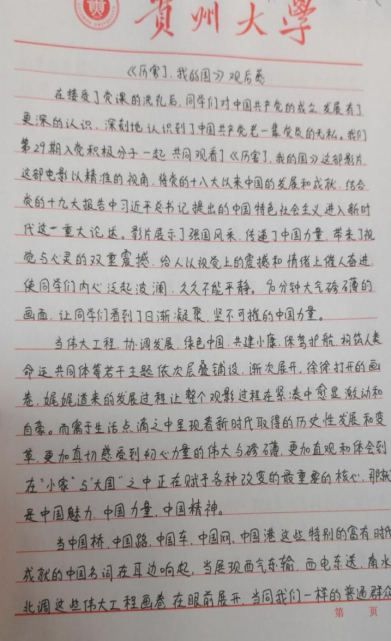 贵州大学
《厉害了，我的国》观后感
在接受了党课的洗礼后，同学们对中国共产党的成立、发展有了
更深的认识，深刻地认识到了中国共产党老一辈党员的无私。我们
第29期入党积极分子一起共同观看了《厉害了，我的国》这部影片
这部电影以精准的视角，将党的十八大以来中国的发展和成就，结合
党的十九大报告中习近平总书记提出的中国特色社会主义进入新时
代这一重大论述。影片展示了强国风采，传递了中国力量，带来了视
觉与心灵的双重震撼，给人以视觉上的震撼和情绪上催人奋进，
使同学们内心泛起波澜，久久不能平静。90分钟大气磅礴的
画面，让同学们看到了日渐凝聚、坚不可摧的中国力量。
当伟大工程、协调发展、绿色中国、共建小康、保驾护航、构筑人类
命运共同体等若干主题依次层叠铺设，渐次展开，徐徐打开的画
卷，娓娓道来的发展过程让整个观影过程在紧凑中愈显激动和
自豪。而寓于生活点滴之中呈现着新时代取得的历史性发展和变
革，更加真切感受到初心力量的伟大与磅礴，更加直观和体会到
在“小家”与“大国”之中正在赋予各种改变的最重要的核心，那就
是中国魅力，中国力量，中国精神。
当中国桥，中国路，中国车，中国网，中国港这些特别的富有时代
成就的中国名词在耳边响起，当展现西气东输，西电东送，南水
北调这些伟大工程画卷在眼前展开，当同我们一样的普通群众
第 页